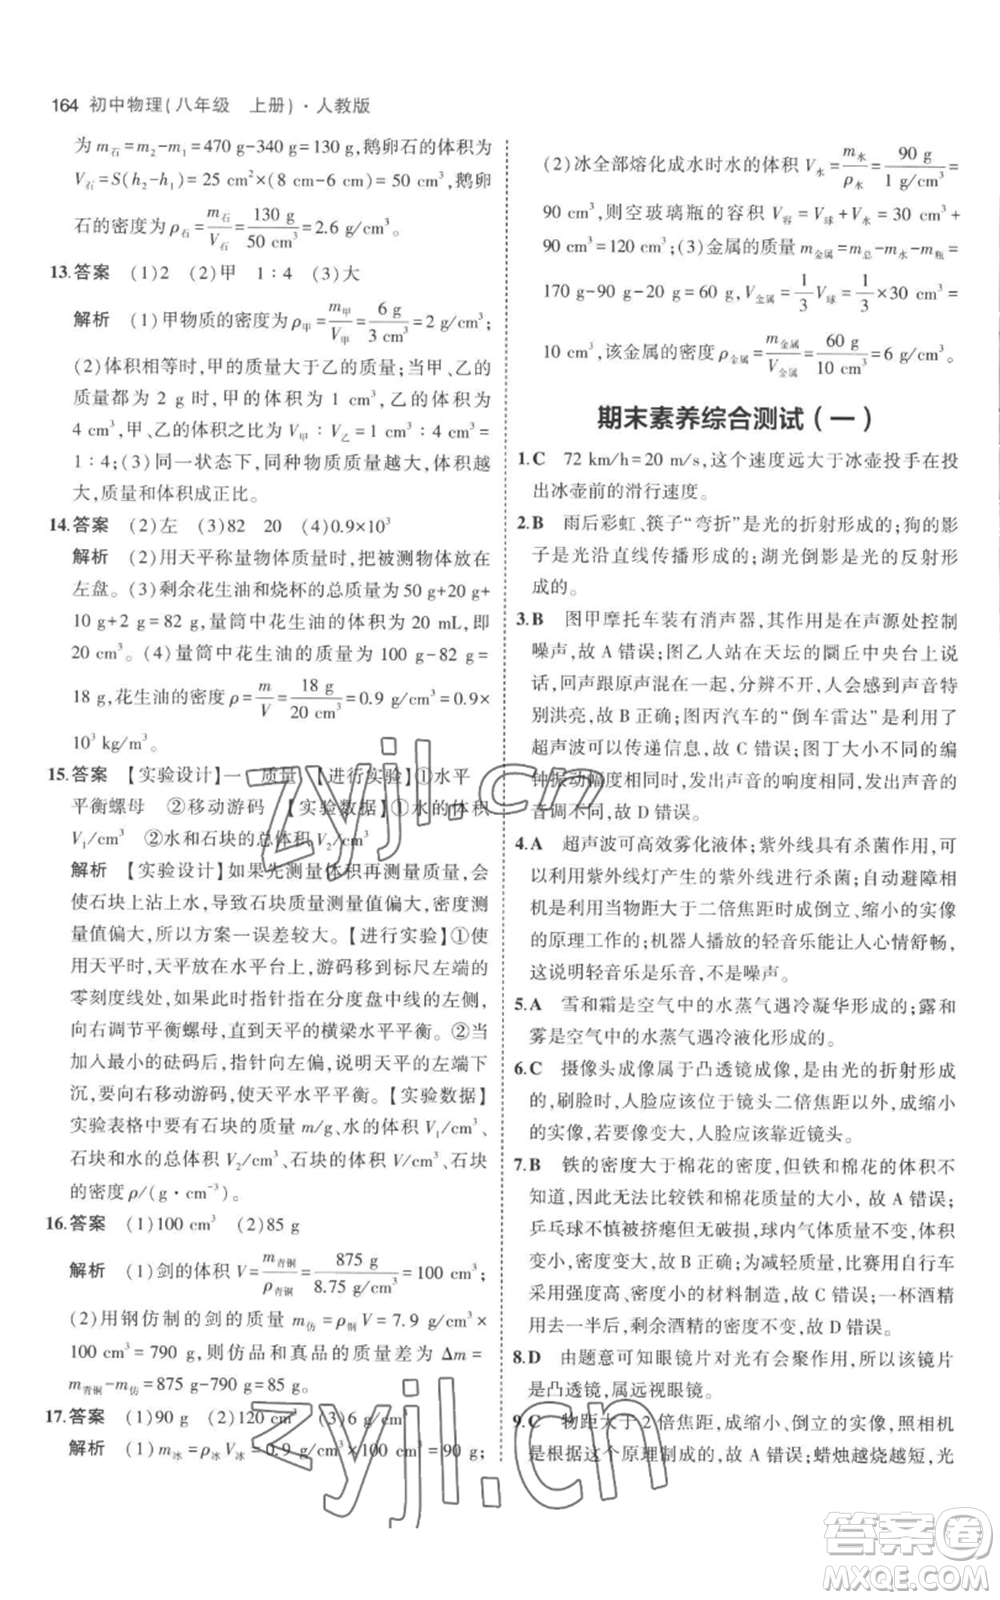 164 初中物理(八年级 上册)·人教版
为 m石=m2-m1=470 g-340 g=130 g,鹅卵石的体积为
V石=S(h2-h1)=25 cm²×(8 cm-6 cm)=50 cm³,鹅卵
石的密度为 ρ石=m石/V石=130 g/50 cm³=2.6 g/cm³。
13.答案 (1)2 (2)甲 1∶4 (3)大
解析 (1)甲物质的密度为 ρ甲=m甲/V甲=6 g/3 cm³=2 g/cm³;
(2)体积相等时,甲的质量大于乙的质量;甲和乙的
质量都为 2 g 时,甲的体积为 1 cm³,乙的体积为
4 cm³,甲、乙的体积之比为 V甲∶V乙=1 cm³∶4 cm³=
1∶4;(3)同一状态下,同种物质质量越大,体积越
大,质量和体积成正比。
14.答案 (2)左 (3)82 20 (4)0.9×10³
解析 (2)用天平称量物体质量时,把被测物体放在
左盘。(3)剩余花生油和烧杯的总质量为 50 g+20 g+
10 g+2 g=82 g,量筒中花生油的体积为 20 mL,即
20 cm³。(4)量筒中花生油的质量为 100 g-82 g=
18 g,花生油的密度 ρ=m/V=18 g/20 cm³=0.9 g/cm³=0.9×
10³ kg/m³。
15.答案 【实验设计】一 质量 【进行实验】①水平
平衡螺母 ②移动游码 【实验数据】①水的体积
V1/cm³ ②水和石块的总体积 V2/cm³
解析 【实验设计】如果先测量体积再测量质量,会
使石块上沾上水,导致石块质量测量值偏大,密度测
量值偏大,所以方案一误差较大。【进行实验】①使
用天平时,将天平放在水平台上,游码移到标尺左端的
零刻度线处,如果此时指针指在分度盘中线的左侧,
向右调节平衡螺母,直到天平的横梁水平平衡。②当
加入最小的砝码后,指针向左偏,说明天平左端下
沉,要向右移动游码,使天平水平平衡。【实验数据】
实验表格中要有石块的质量 m/g、水的体积 V1/cm³、
石块和水的总体积 V2/cm³、石块的体积 V/cm³、石块
的密度 ρ/(g·cm⁻³)。
16.答案 (1)100 cm³ (2)85 g
解析 (1)剑的体积 V=m青铜/ρ青铜=875 g/8.75 g/cm³=100 cm³;
(2)用钢仿制的剑的质量 m仿=ρ钢V=7.9 g/cm³×
100 cm³=790 g,则仿品和真品的质量差为 Δm=
m青铜-m仿=875 g-790 g=85 g。
17.答案 (1)90 g (2)120 cm³ (3)6 g/cm³
解析 (1)m冰=ρ冰V冰=0.9 g/cm³×100 cm³=90 g;
(2)冰全部熔化成水时水的体积 V水=m水/ρ水=90 g/1 g/cm³=
90 cm³,则空玻璃瓶的容积 V容=V球+V水=30 cm³+
90 cm³=120 cm³;(3)金属的质量 m金属=m总-m水-m瓶=
170 g-90 g-20 g=60 g,V金属=1/3V球=1/3×30 cm³=
10 cm³,该金属的密度 ρ金属=m金属/V金属=60 g/10 cm³=6 g/cm³。
期末素养综合测试(一)
1.C 72 km/h=20 m/s,这个速度远大于冰壶投手在投
出冰壶前的滑行速度。
2.B 雨后彩虹、筷子“弯折”是光的折射形成的;狗的影
子是光沿直线传播形成的;湖光倒影是光的反射形
成的。
3.B 图甲摩托车装有消声器,其作用是在声源处控制
噪声,故 A 错误;图乙人站在天坛的圜丘中央台上说
话,回声与原声混在一起,分辨不开,会感觉声音特
别洪亮,故 B 正确;图丙汽车的“倒车雷达”是利用了
超声波可以传递信息,故 C 错误;图丁大小不同的编
钟振动幅度相同时,发出声音的响度相同,发出声音的
音调不同,故 D 错误。
4.A 超声波可高效雾化液体;紫外线有杀菌作用,可
以利用紫外线灯产生的紫外线进行杀菌;自动避障相
机是利用当物距大于二倍焦距时成倒立、缩小的实像
的原理工作的;机器人播放的轻音乐能让人心情舒畅,
这说明轻音乐是乐音,不是噪声。
5.A 雪和霜是空气中的水蒸气遇冷凝华形成的;露和
雾是空气中的水蒸气遇冷液化形成的。
6.C 摄像头成像属于凸透镜成像,是光的折射形成
的,刷脸时,人脸应该位于镜头二倍焦距以外,成缩小
的实像,若像要变大,人脸应该靠近镜头。
7.B 铁的密度大于棉花的密度,但铁和棉花的体积不
知道,因此无法比较铁和棉花的质量大小,故 A 错误;
乒乓球不慎被挤瘪但没破裂,球内气体质量不变,体
积变小,密度变大,故 B 正确;为减小质量,比赛用自行车
采用强度高、密度小的材料制造,故 C 错误;一杯酒精
用去一半后,剩余酒精的密度不变,故 D 错误。
8.D 由题意可知眼镜片对光有会聚作用,所以该镜片
是凸透镜,属远视眼镜。
9.C 物距大于 2 倍焦距,成缩小、倒立的实像,照相机
是根据这个原理制成的,故 A 错误;蜡烛越烧越短,光
zyjl.cn
zyjl.cn
答案卷
MXQE.COM